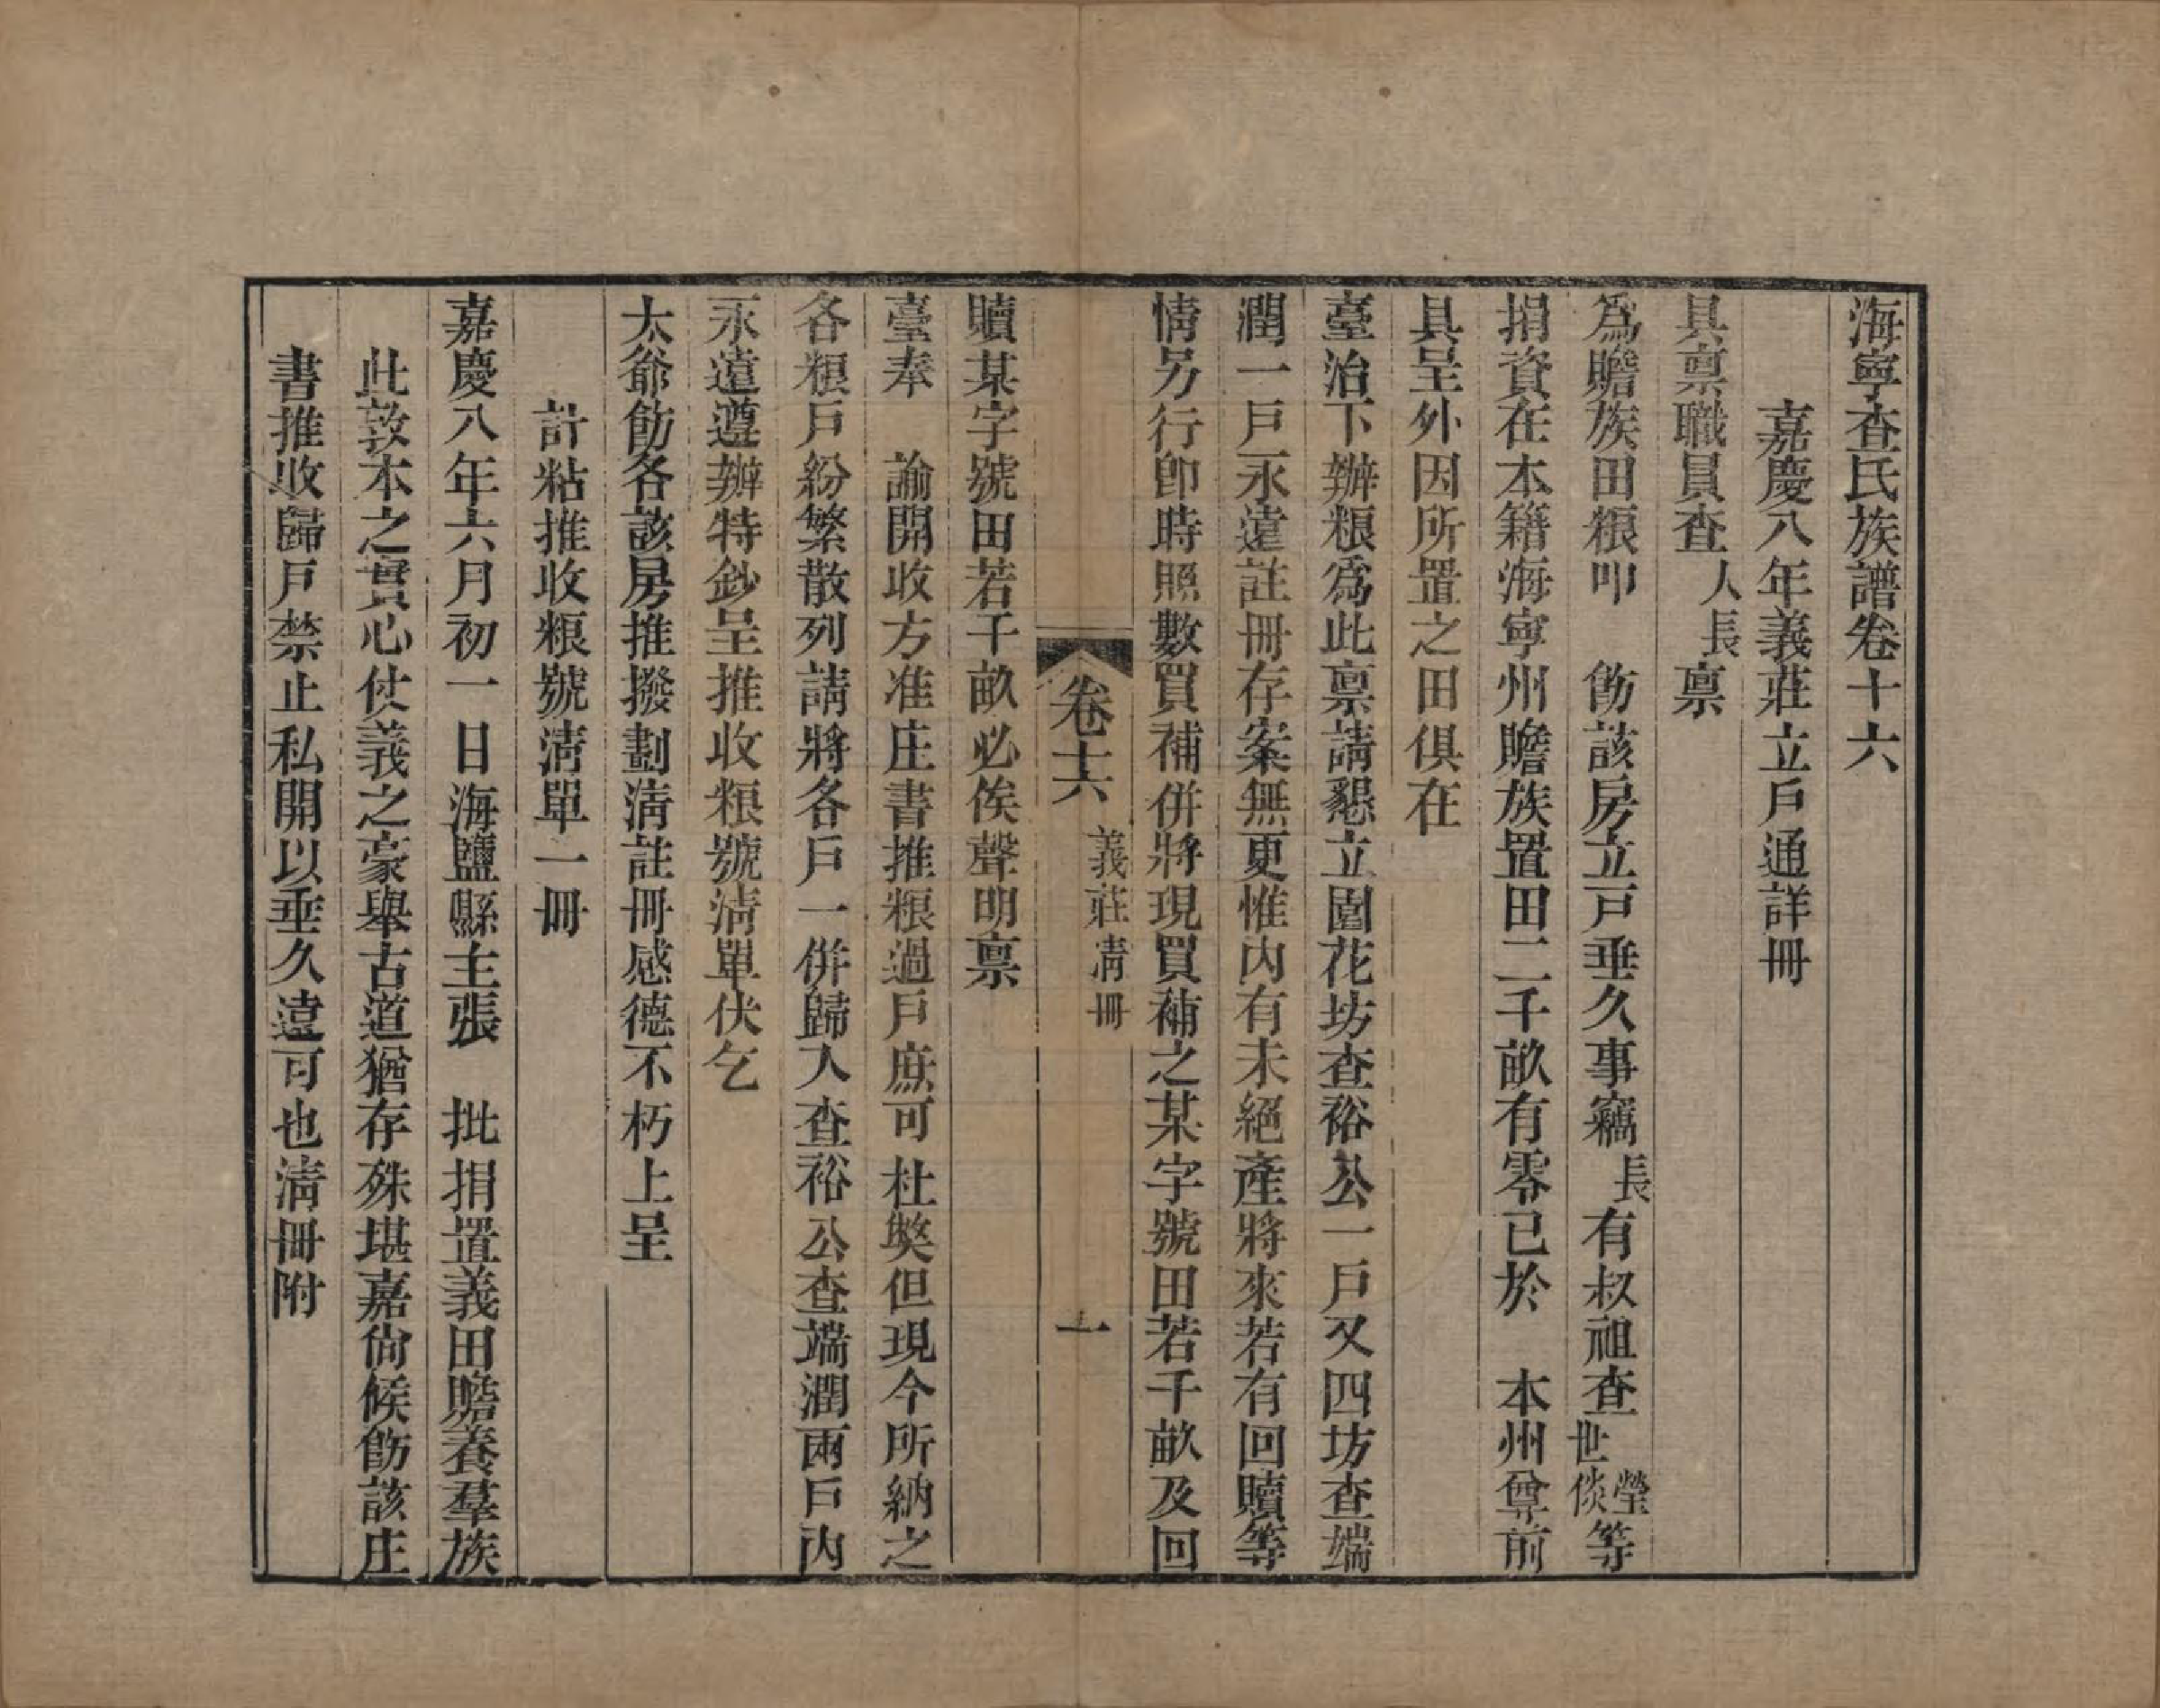 海寧查氏族譜卷十六
嘉慶八年義莊立戶通詳冊
具禀職員查人長禀
爲贍族田粮叩　飭該房立戶垂久事竊長有叔祖查世瑩倓等
捐資在本籍海寧州贍族置田二千畝有零已於　本州曾前
具呈外因所置之田俱在
臺治下辦粮爲此禀請懇立園花坊查裕公一戶又四坊查端
潤一戶永遠註冊存案無更惟內有未絕產將來若有回贖等
情另行卽時照數買補併將現買補之某字號田若干畝及回
卷十六　義莊清冊　一
贖某字號田若干畝必俟聲明禀
臺奉　諭開收方准庄書推粮過戶庶可杜獘但現今所納之
各粮戶紛繁散列請將各戶一併歸入查裕公查端潤兩戶內
永遠遵辦特鈔呈推收粮號清單伏乞
太爺飭各該房推撥劃清註冊感德不朽上呈
計粘推收粮號清單一冊
嘉慶八年六月初一日海鹽縣主張　批捐置義田贍養羣族
此敦本之實心仗義之豪舉古道猶存殊堪嘉尙候飭該庄
書推收歸戶禁止私開以垂久遠可也清冊附